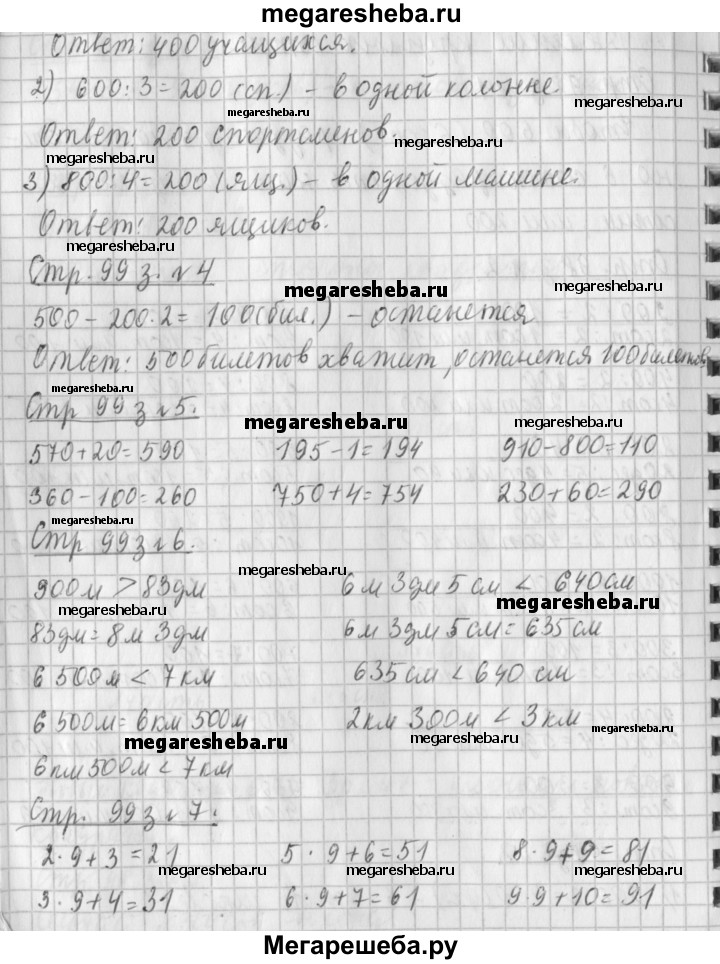 megaresheba.ru
Ответ: 400 учащихся.
2) 600:3=200 (сп.) - в одной колонне.
megaresheba.ru megaresheba.ru
Ответ: 200 спортсменов.
megaresheba.ru megaresheba.ru
3) 800:4=200 (ящ.) - в одной машине.
Ответ: 200 ящиков.
megaresheba.ru
Стр. 99 з. №4
megaresheba.ru
500 - 200·2= 100(бил.) - останется
Ответ: 500 билетов хватит, останется 100 билетов
megaresheba.ru megaresheba.ru
Стр 99 з №5.
megaresheba.ru megaresheba.ru
570+20=590 195-1=194 910-800=110
360-100=260 750+4=754 230+60=290
megaresheba.ru
Стр 99 з №6.
900м > 83дм 6м 3дм 5см < 640см
megaresheba.ru megaresheba.ru
83дм=8м 3дм 6м 3дм 5см=635см
6 500м < 7км 635см < 640см
6 500м=6км 500м 2км 300м < 3км
megaresheba.ru megaresheba.ru megaresheba.ru
6км 500м < 7км
Стр. 99 з №7.
megaresheba.ru
2·9+3=21 5·9+6=51 8·9+9=81
megaresheba.ru megaresheba.ru megaresheba.ru
3·9+4=31 6·9+7=61 9·9+10=91
Мегарешеба.ру